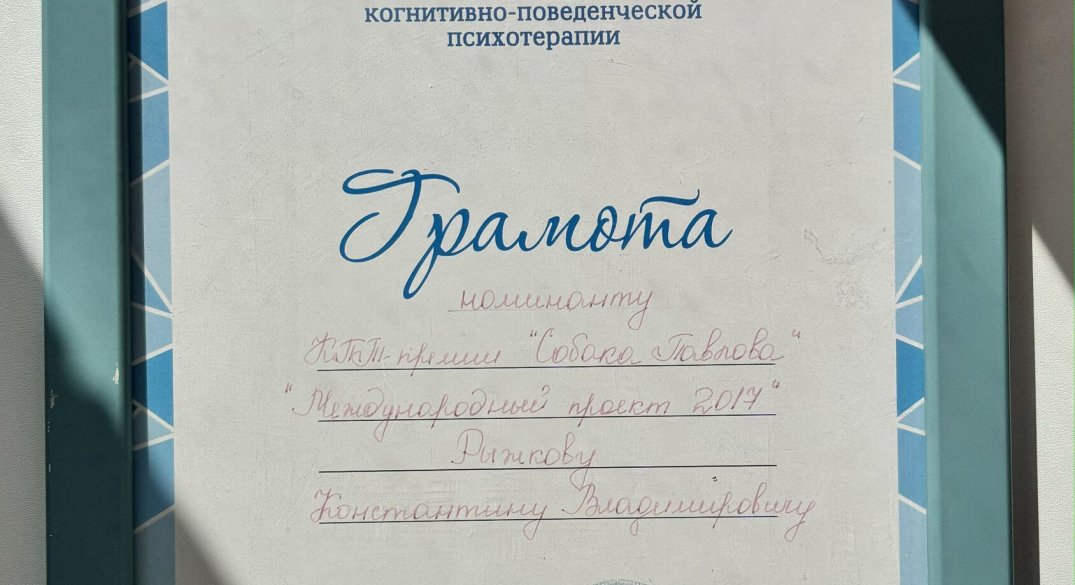 когнитивно-поведенческой
психотерапии
Грамота
номинанту
КПТ-премии "Собака Павлова"
"Международный проект 2017"
Рыжкову
Константину Владимировичу